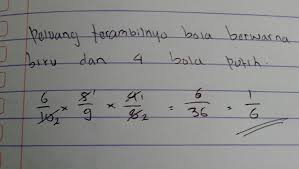 Peluang terambilnya bola berwarna
biru dan 4 bola putih.
6/10 2 × 5 1/9 × 4 1/8 2 = 6/36 = 1/6